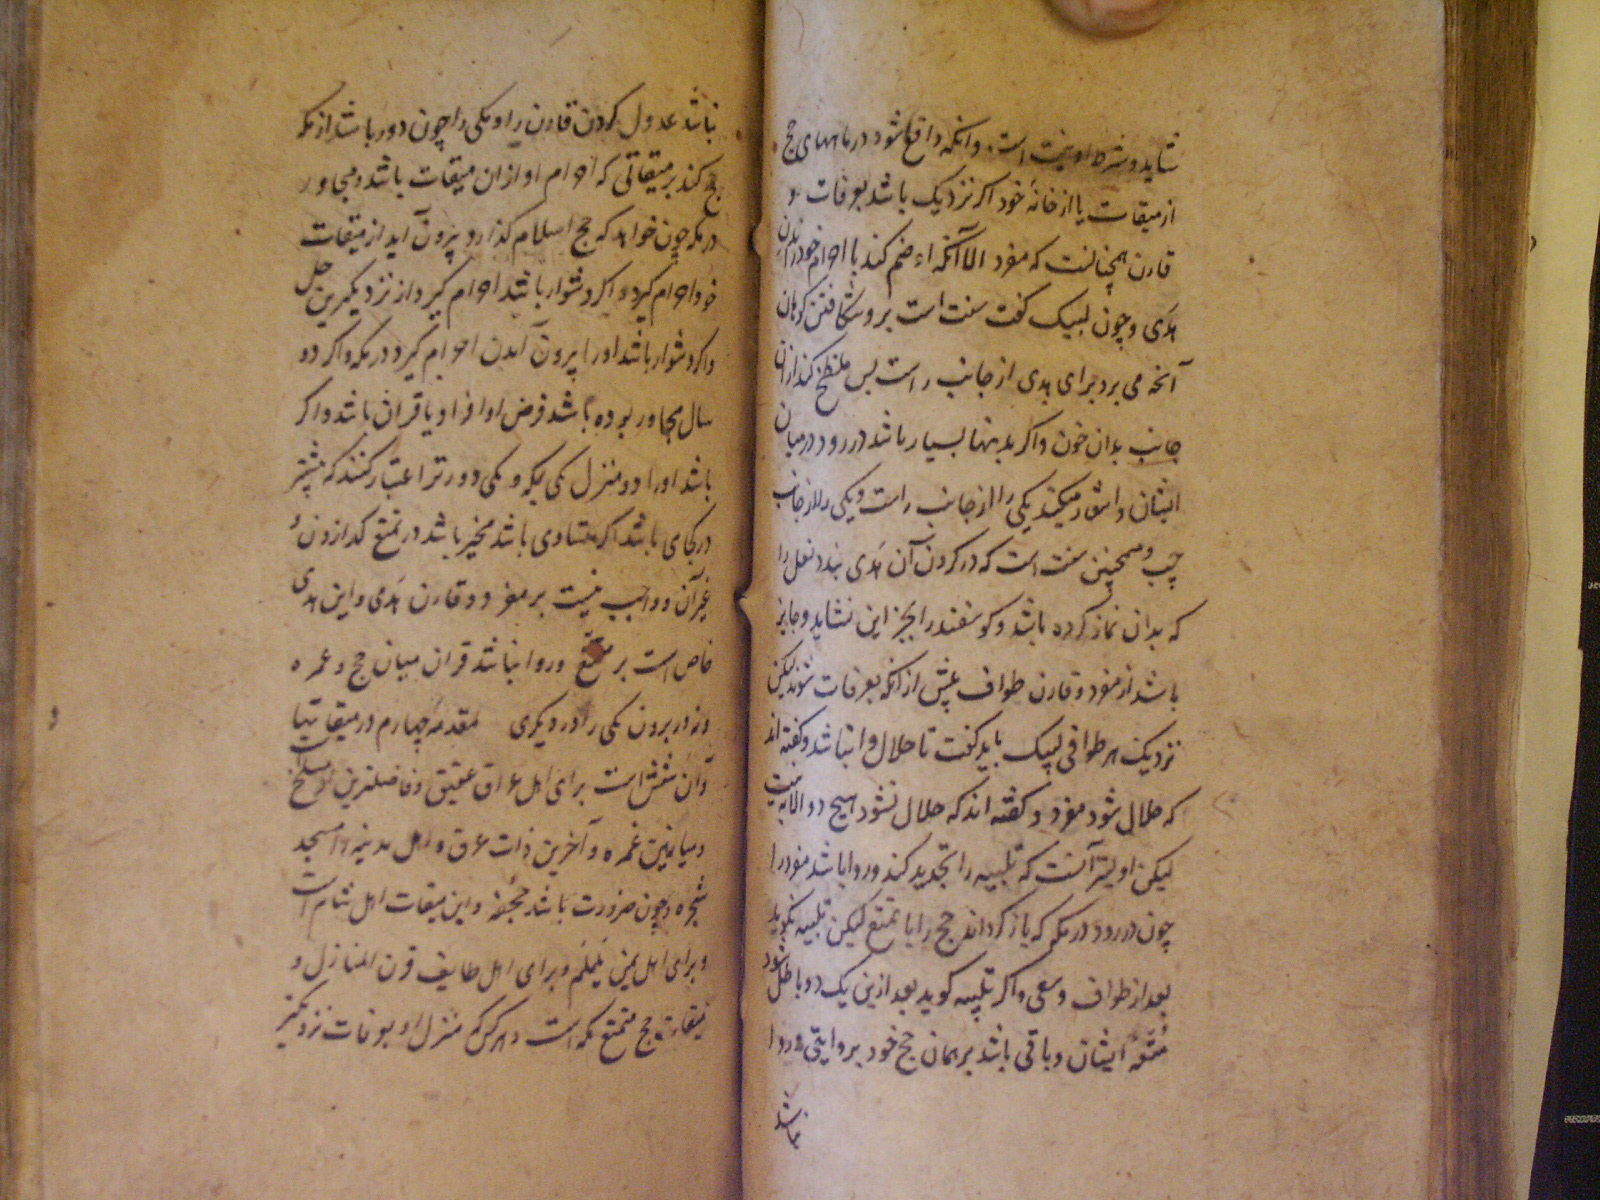 شاید و شرط او نیت است و آنکه واقع شود در ماههای حج
از میقات یا از خانهٔ خود اگر نزدیک باشد بعرفات و
قارن همچنانست که مفرد الا آنکه او ضم کند با احرام خود راندن
هدی و چون لبیک گفت سنت است بر و شکافتن کوهان
آنچه می برد برای هدی از جانب راست پس ملطخ کند از آن
جانب بدان خون و اگر بدنها بسیار باشد در رود در میان
ایشان و اشعار میکند یکی را از جانب راست و یکی را از جانب
چپ و همچنین سنت است که در گردن آن هدی بندد نعل را
که بدان نماز کرده باشد و گوسفند را بجز این نشاید و جایز
باشد از مفرد و قارن طواف پیش از آنکه بعرفات شوند لیکن
نزدیک هر طوافی لبیک باید گفت تا حلال نباشد و گفته اند
که حلال شود مفرد و گفته اند که حلال نشود هیچ دو الا به نیت
لیکن اولیتر آنست که تلبیه را تجدید کند و روا باشد مفرد را
چون در رود در مکه که باز گرداند حج را با تمتع لیکن تلبیه نگوید
بعد از طواف و سعی و اگر تلبیه گوید بعد ازین یک دو باطل شود
متعهٔ ایشان و باقی باشد بر همان حج خود بروایتی و روا
نباشد
نباشد عدول کردن قارن را و مکی را چون دور باشد از مکه
حج کند بر میقاتی که احرام او از آن میقات باشد و مجاور
در مکه چون خواهد که حج اسلام گذارد بیرون آید از میقات
خود احرام گیرد و اگر دشوار باشد احرام گیرد از نزدیکترین حل
و اگر دشوار باشد او را بیرون آمدن احرام گیرد در مکه و اگر دو
سال مجاور بوده باشد فرض او افراد یا قران باشد و اگر
باشد او را دو منزل یکی بمکه و یکی دورتر اعتبار کنند که بیشتر
در کجای باشد اگر متساوی باشد مخیر باشد در تمتع گذاردن و
غیر آن و واجب نیست بر مفرد و قارن هدی و این هدی
خاص است بر متمتع و روا نباشد قران میان حج و عمره
و نه در بردن یکی را در دیگری مقدمهٔ چهارم در میقاتها
و آن شش است برای اهل عراق عقیق و فاضلترین او مسلخ است
و میانین غمره و آخرین ذات عرق و اهل مدینه را مسجد
شجره و چون ضرورت باشد جحفه و این میقات اهل شام است
و برای اهل یمن یلملم و برای اهل طایف قرن المنازل و
میقات حج متمتع مکه است و هر کس که منزل او بعرفات نزدیکتر